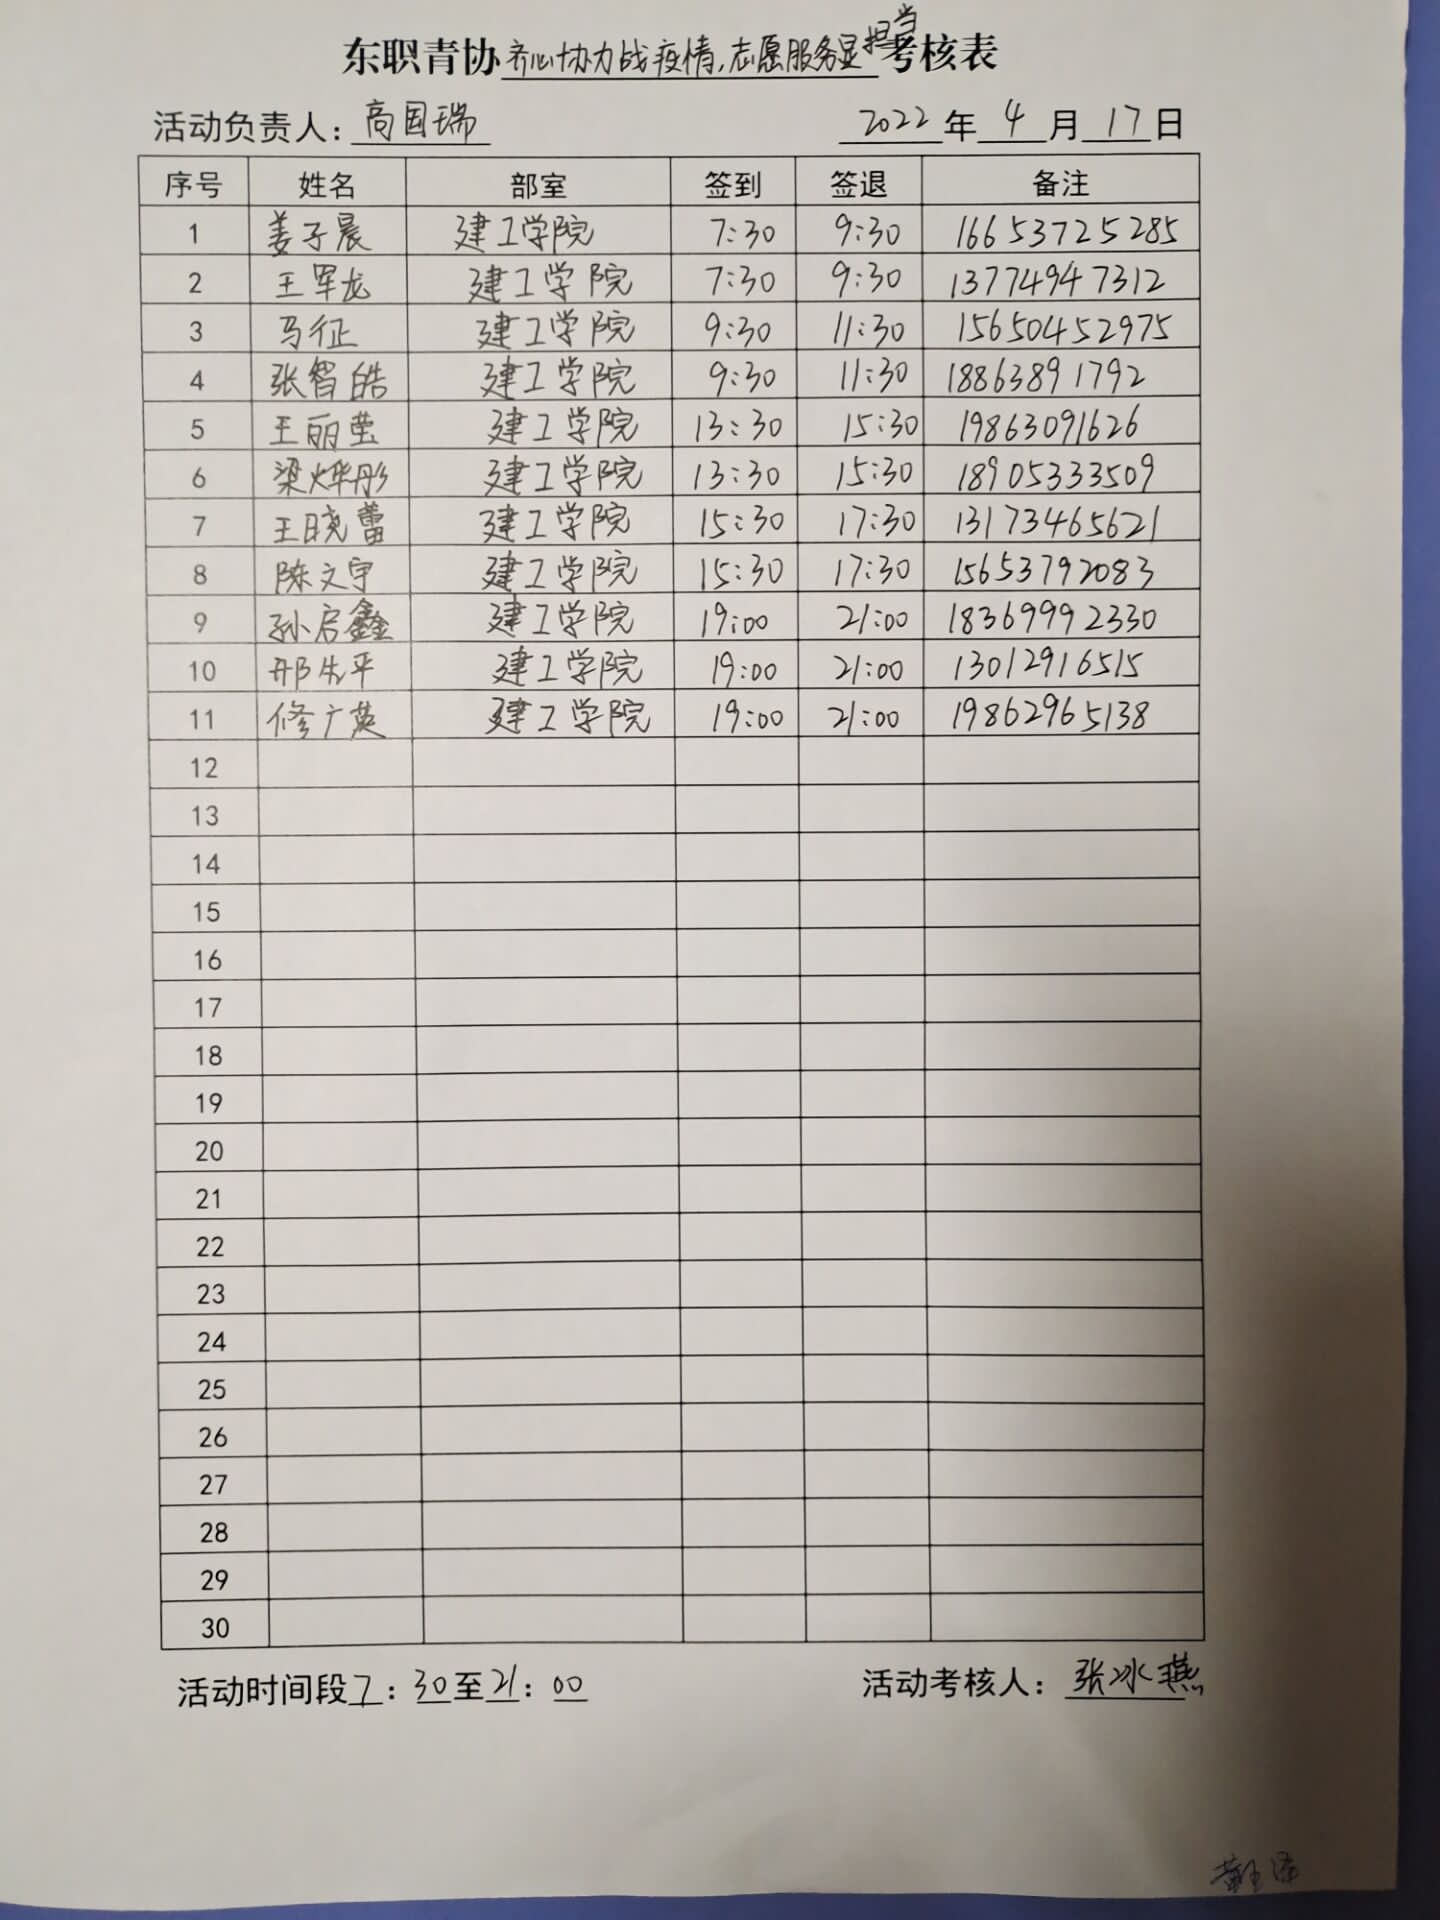 东职青协齐心协力战疫情,志愿服务显担当考核表
活动负责人：高国瑞 2022年4月17日
序号 姓名 部室 签到 签退 备注
1 姜子晨 建工学院 7:30 9:30 16653725285
2 王军龙 建工学院 7:30 9:30 13774947312
3 马征 建工学院 9:30 11:30 15650452975
4 张智皓 建工学院 9:30 11:30 18863891792
5 王丽莹 建工学院 13:30 15:30 19863091626
6 梁烨彤 建工学院 13:30 15:30 18905333509
7 王晓蕾 建工学院 15:30 17:30 13173465621
8 陈文宇 建工学院 15:30 17:30 15653792083
9 孙启鑫 建工学院 19:00 21:00 18369992330
10 邢先平 建工学院 19:00 21:00 13012916515
11 修广英 建工学院 19:00 21:00 19862965138
12
13
14
15
16
17
18
19
20
21
22
23
24
25
26
27
28
29
30
活动时间段7：30至21：00 活动考核人：张冰燕